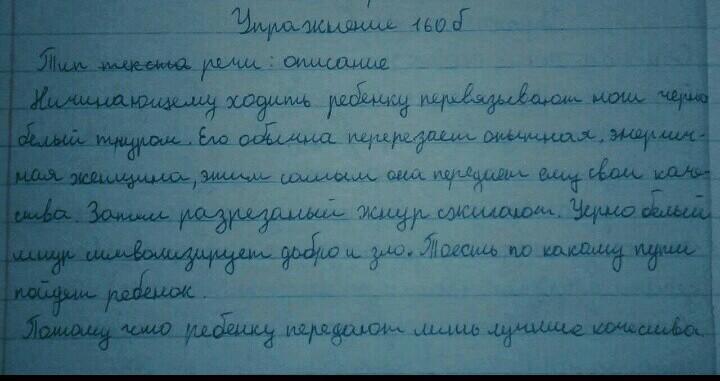 Упражнение 160б
Тип текста речи: описание
Ничинающему ходить ребенку перевязывают ноги черно
белый шнуром. Его обычна перерезает опытная, энергич-
ная женщина, этим самым она передает ему свои каче-
ства. Затем разрезаный жнур сжигают. Черно белый
шнур символизирует добро и зло. Тоесть по какому пути
пойдет ребенок.
Потому что ребенку передают лишь лучшие качества